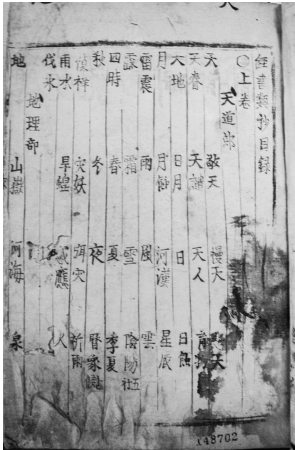 經書類抄目錄
○上卷
天運部
天 敬天 慢天 天
天春 天譴 天人
天地 日月 日 日蝕
月 月蝕 河漢 星辰
雷震 雨 風 雲
露 霜 雪 陰陽 五
四時 春 夏 季夏
秋 冬 夜 曆象
災妖 弭災 祈雨
雨水 旱蝗 感應 人
伐氷
地理部
地 山嶽 河海 泉
148702